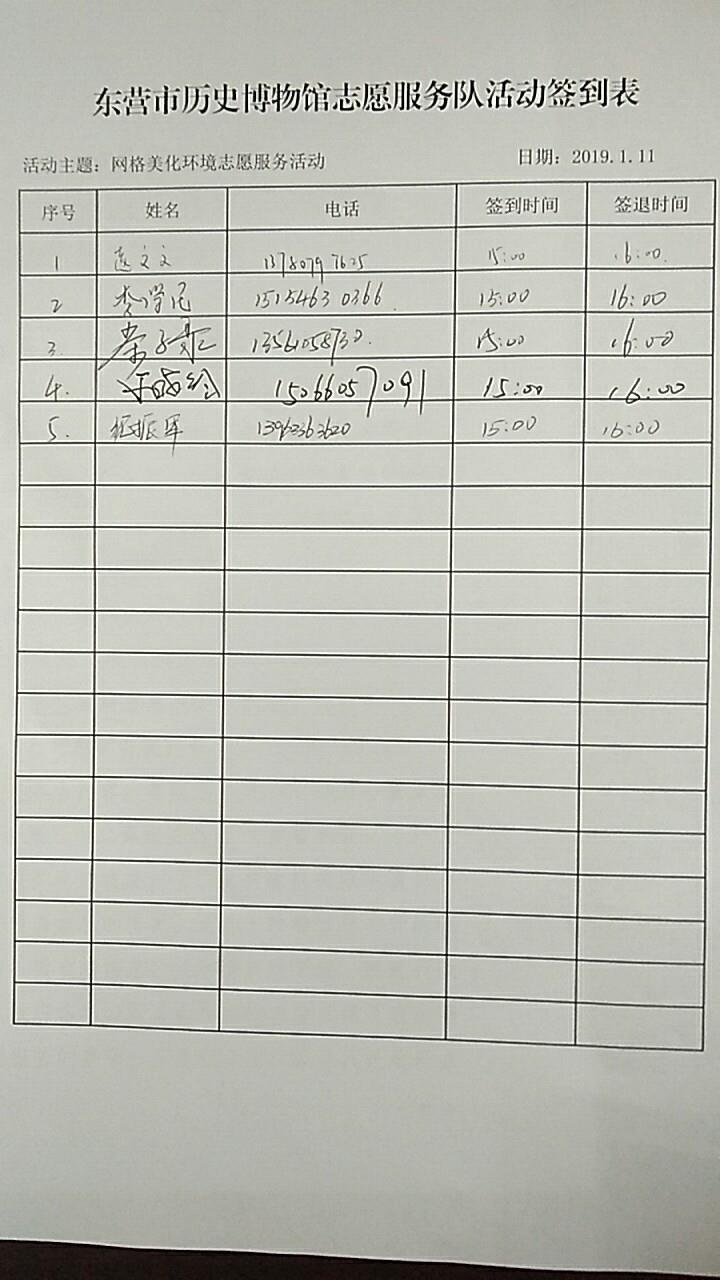 东营市历史博物馆志愿服务队活动签到表
活动主题：网格美化环境志愿服务活动 日期：2019.1.11
序号 姓名 电话 签到时间 签退时间
1 文文 13780797625 15:00 16:00.
2 李学民 15154630366. 15:00 16:00
3. 荣子 13561058730. 15:00 16:00
4. 15066057091 15:00 16:00
5. 振军 13963363620 15:00 16:00